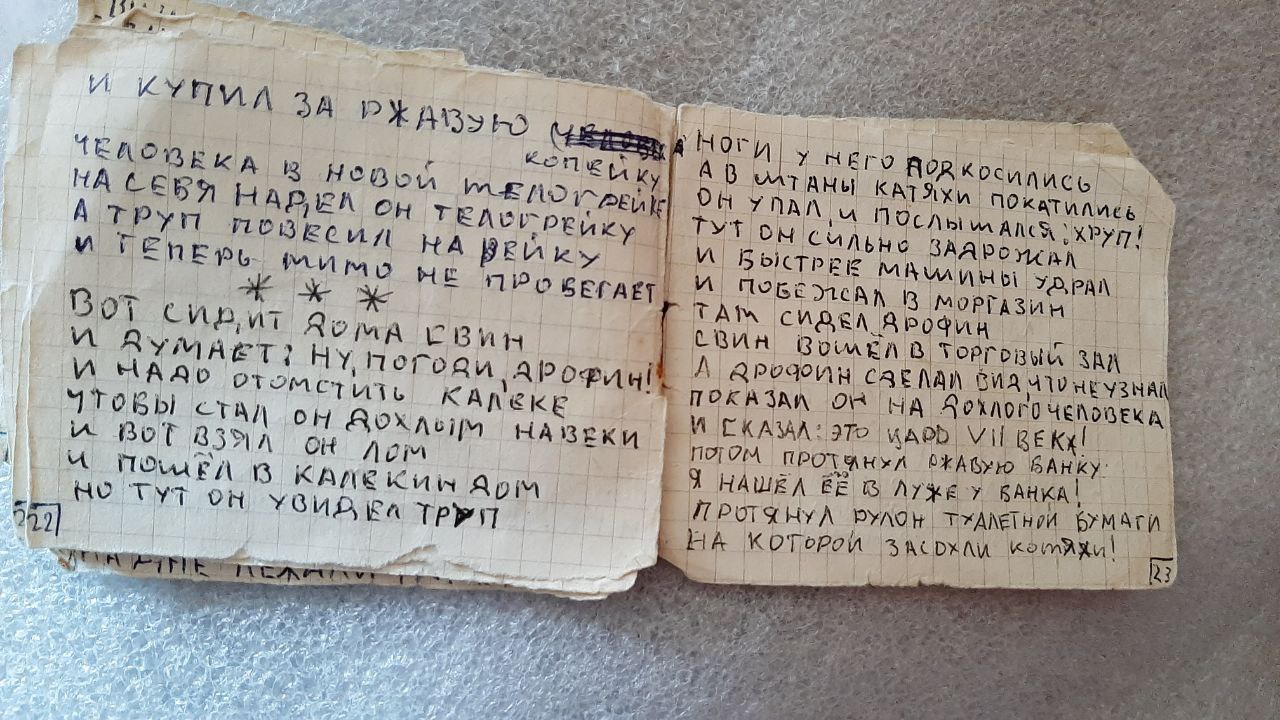 И КУПИЛ ЗА РЖАВУЮ
КОПЕЙКУ
ЧЕЛОВЕКА В НОВОЙ ТЕЛОГРЕЙКЕ
НА СЕБЯ НАДЕЛ ОН ТЕЛОГРЕЙКУ
А ТРУП ПОВЕСИЛ НА РЕЙКУ
И ТЕПЕРЬ МИМО НЕ ПРОБЕГАЕТ
* * *
ВОТ СИДИТ ДОМА СВИН
И ДУМАЕТ: НУ, ПОГОДИ, ДРОФИН!
И НАДО ОТОМСТИТЬ КАЛЕКЕ
ЧТОБЫ СТАЛ ОН ДОХЛЫМ НАВЕКИ
И ВОТ ВЗЯЛ ОН ЛОМ
И ПОШЁЛ В КАЛЕКИН ДОМ
НО ТУТ ОН УВИДЕЛ ТРУП
22
НОГИ У НЕГО ПОДКОСИЛИСЬ
А В ШТАНЫ КАТЯХИ ПОКАТИЛИСЬ
ОН УПАЛ, И ПОСЛЫШАЛСЯ: ХРУП!
ТУТ ОН СИЛЬНО ЗАДРОЖАЛ
И БЫСТРЕЕ МАШИНЫ УДРАЛ
И ПОБЕЖАЛ В МОРГАЗИН
ТАМ СИДЕЛ ДРОФИН
СВИН ВОШЁЛ В ТОРГОВЫЙ ЗАЛ
А ДРОФИН СДЕЛАЛ ВИД, ЧТО НЕ УЗНАЛ
ПОКАЗАЛ ОН НА ДОХЛОГО ЧЕЛОВЕКА
И СКАЗАЛ: ЭТО ЦАРЬ VII ВЕКА!
ПОТОМ ПРОТЯНУЛ РЖАВУЮ БАНКУ:
Я НАШЁЛ ЕЁ В ЛУЖЕ У БАНКА!
ПРОТЯНУЛ РУЛОН ТУАЛЕТНОЙ БУМАГИ
НА КОТОРОЙ ЗАСОХЛИ КОТЯХИ!
23